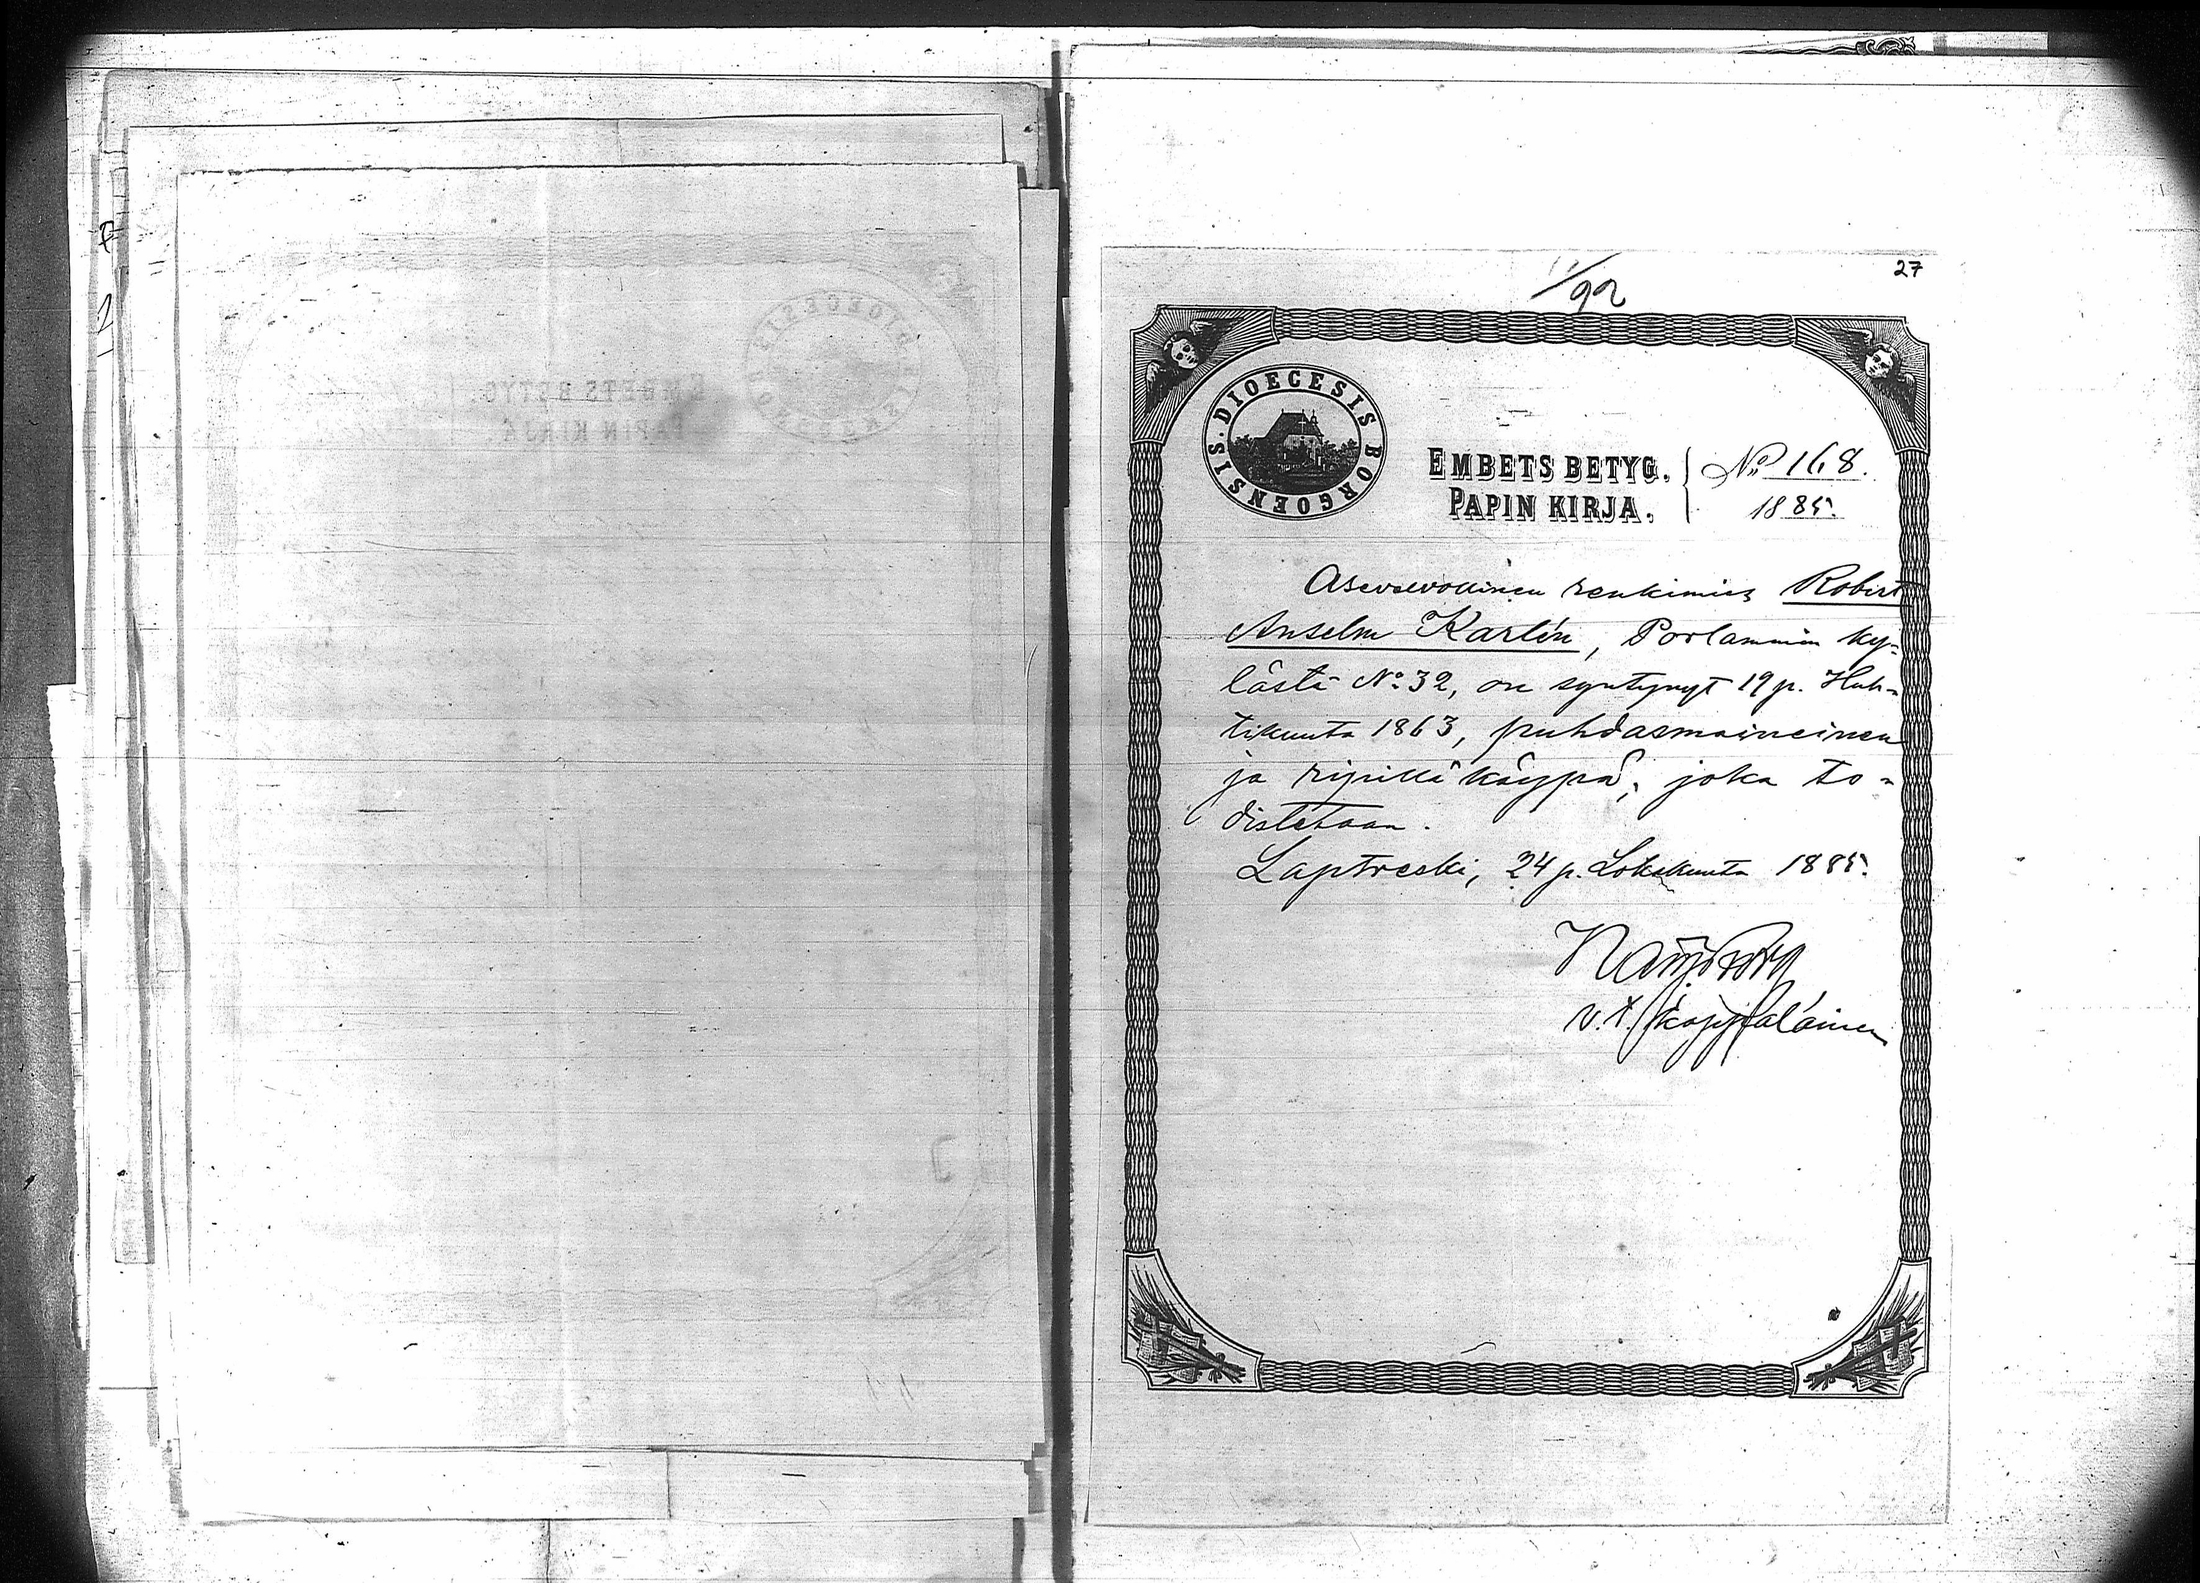 27
/92
DIOECESIS BORGOENSIS.
EMBETS BETYG.
PAPIN KIRJA.
No 168.
1885.
Asevelvollinen renkimies Robert
Anselm Karlén, Porlammin ky-
lästä No 32, on syntynyt 19 p. Huh-
tikuuta 1863, puhdasmaineinen
ja ripillä käypä; joka to-
distetaan.
Laptreski, 24 p. Lokakuuta 1885.
v.t. kappalainen